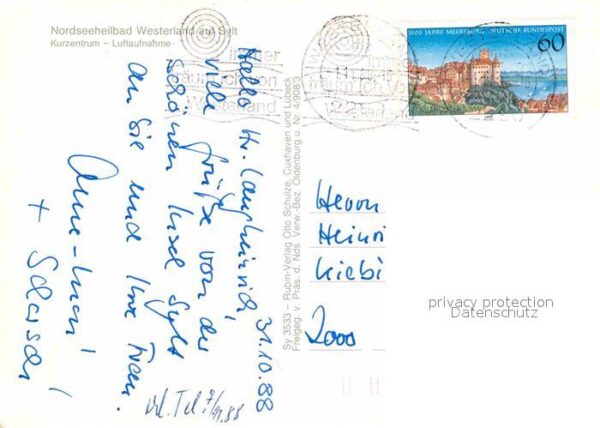 Nordseeheilbad Westerland auf Sylt
Kurzentrum – Luftaufnahme
1000 JAHRE MEERSBURG DEUTSCHE BUNDESPOST
60
immer
träum ich von
Westerland
31.10.88
Hallo Hr.
viele Grüße von der
schönen Insel Sylt
an Sie und Ihre Frau.
+
Tel. 7/11.88
Sy 3533 – Rubin-Verlag Otto Schulze, Cuxhaven und Lübeck
Freigeg. v. Präs. d. Nds. Verw.-Bez. Oldenburg u. Nr. 4/908/3
Herrn
Heinri
Kiebi
2000
privacy protection
Datenschutz